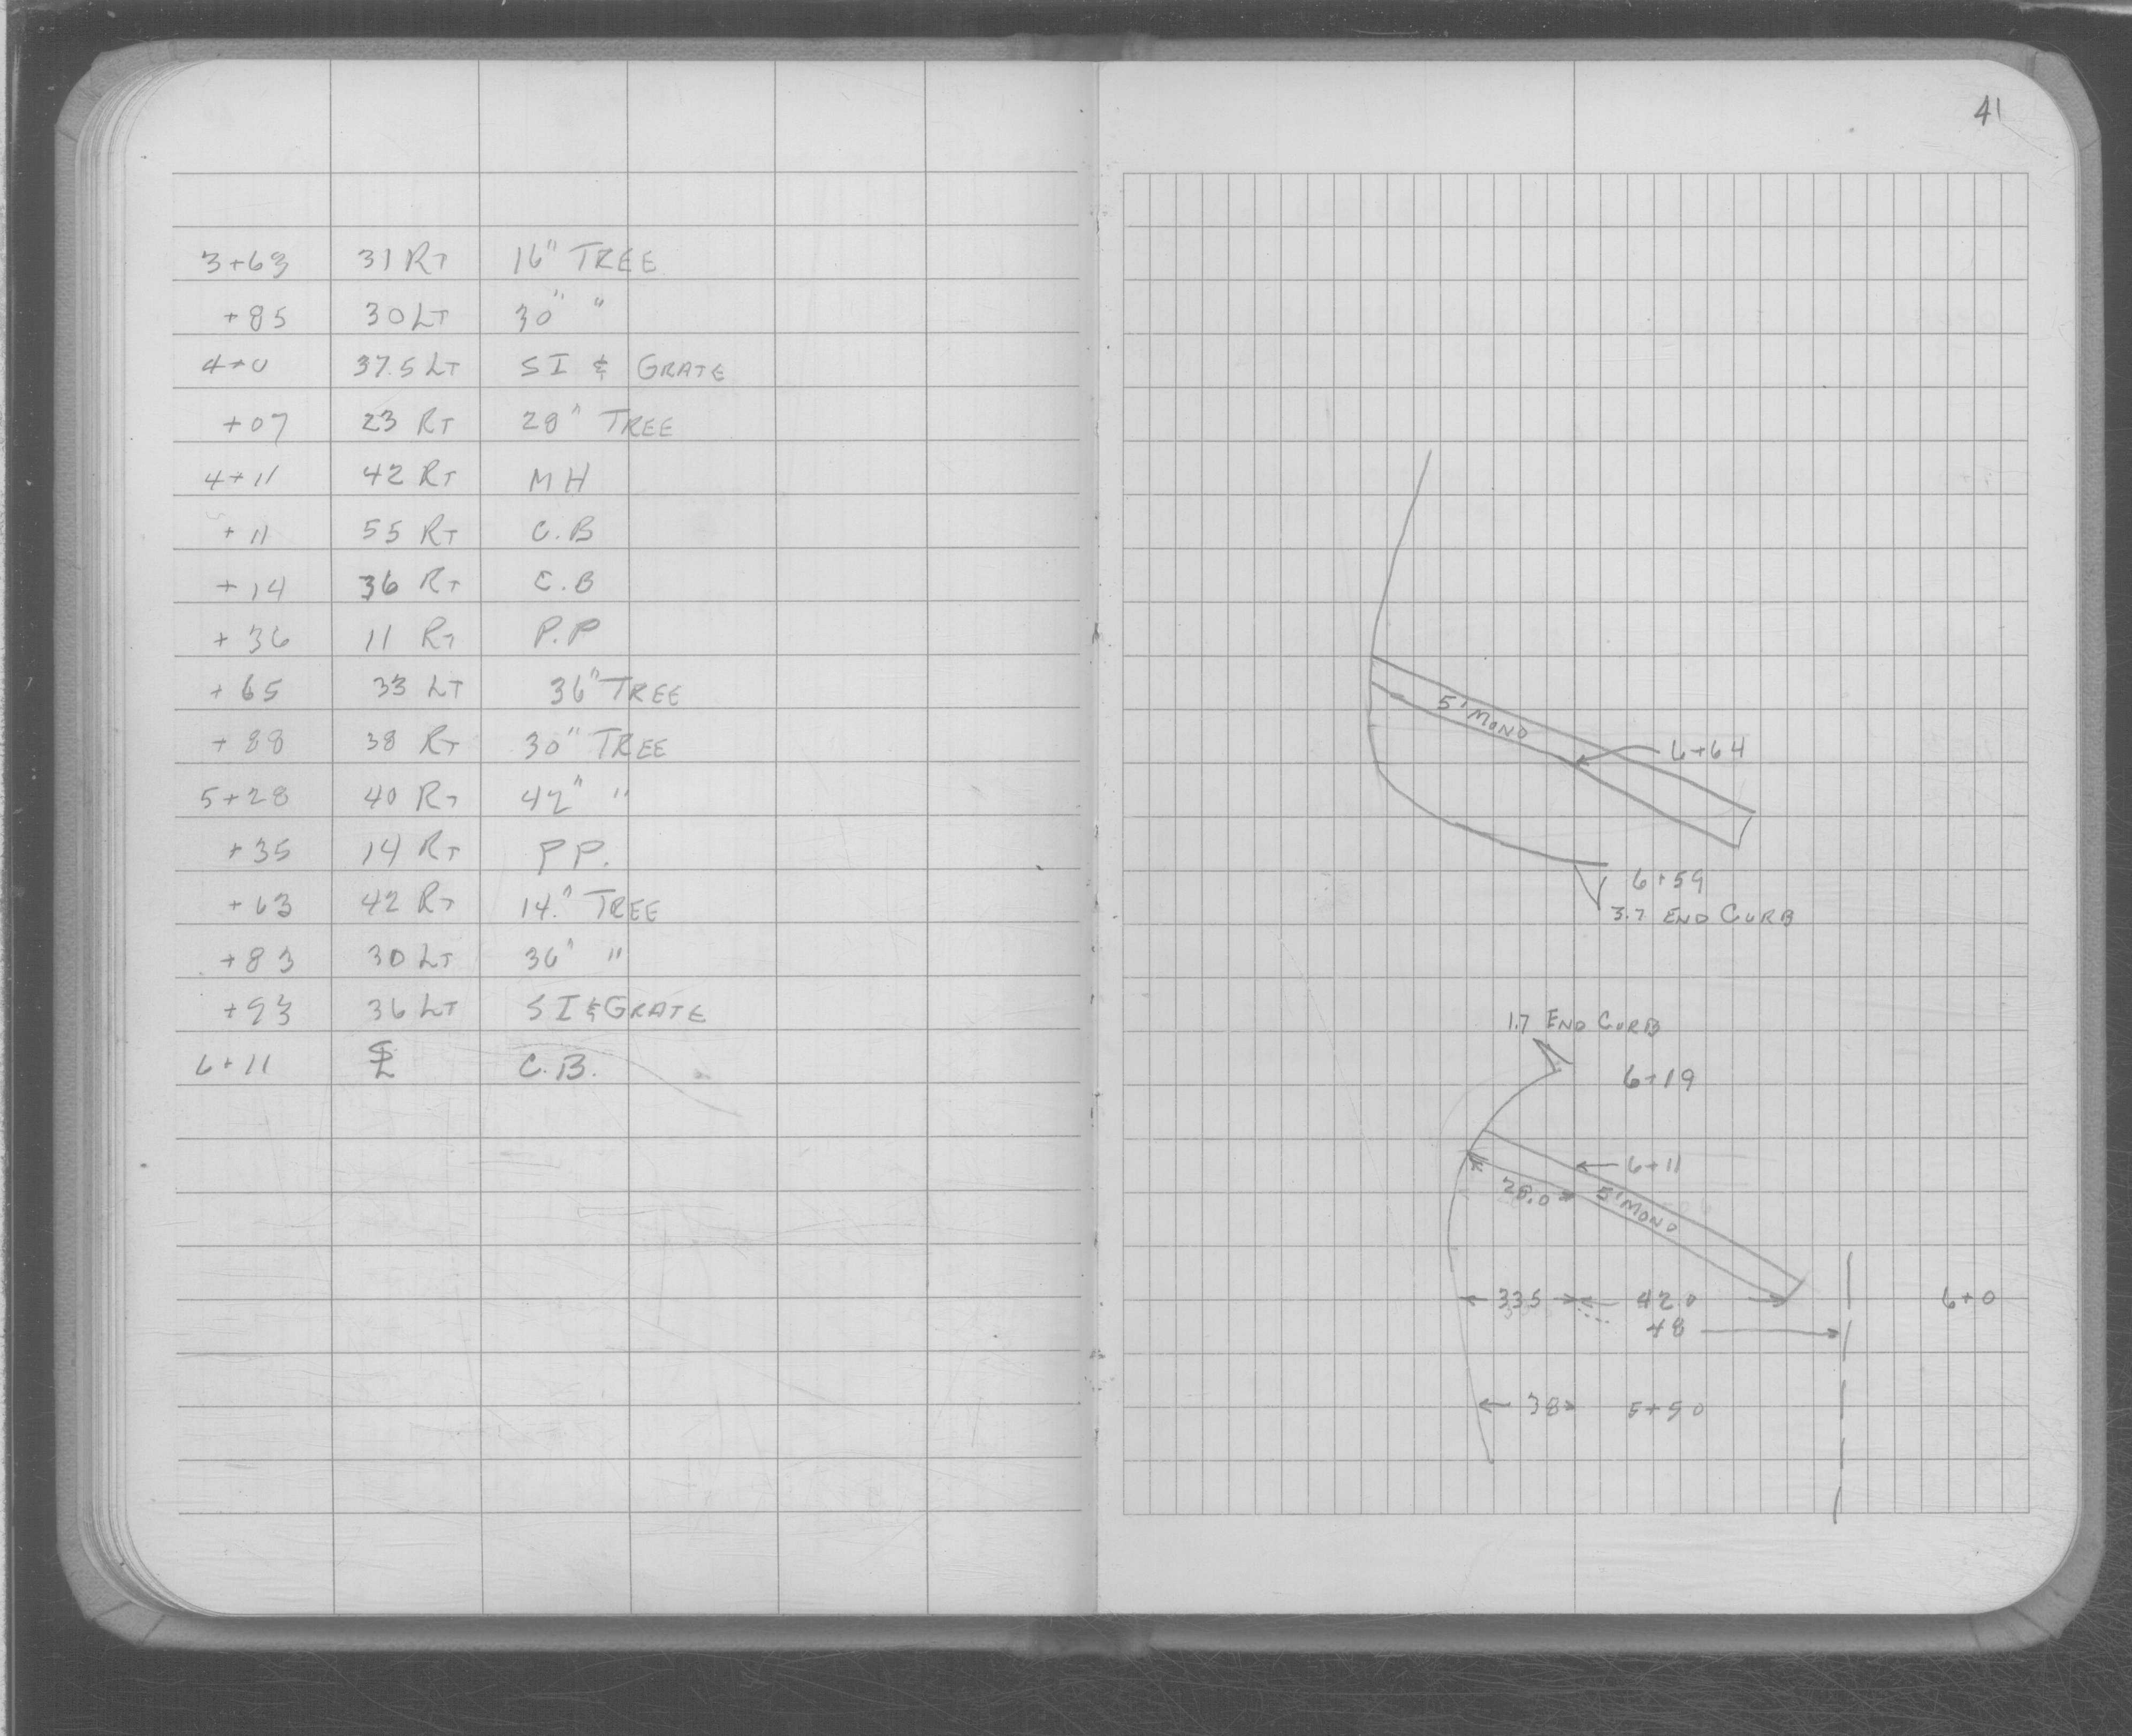 3+63 31 RT 16" TREE
+85 30 LT 30" "
4+0 37.5 LT SI & GRATE
+07 23 RT 28" TREE
4+11 42 RT MH
+11 55 RT C.B
+14 36 RT C.B
+36 11 RT P.P
+65 33 LT 36" TREE
+88 38 RT 30" TREE
5+28 40 RT 42" "
+35 14 RT PP.
+63 42 RT 14" TREE
+83 30 LT 36" "
+93 36 LT SI & GRATE
6+11 ℄ C.B.
41
5' MONO
6+64
6+59
3.7 END CURB
1.7 END CURB
6+19
6+11
5' MONO
33.5 42.0 6+0
48
38 5+50